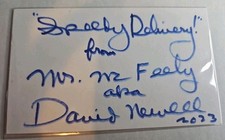 "Speedy Delivery!"
from
Mr. Mc Feely
aka
David Newell
2023